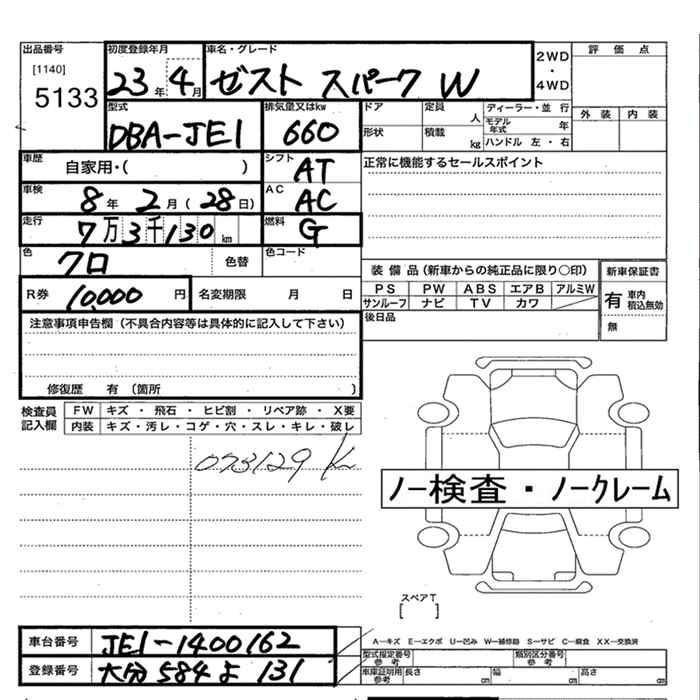 出品番号 初度登録年月 車名・グレード 2WD・4WD 評価点
[1140]
5133 23年 4月 ゼスト スパーク W
型式 排気量又はkw ドア 定員 人 ディーラー・並 行 外装 内装
DBA-JE1 660 形状 積載 kg モデル年式 年
ハンドル 左・右
車歴 自家用・( ) シフト AT 正常に機能するセールスポイント
車検 8年 2月(28日) AC AC
走行 7万3千130km 燃料 G
色 クロ 色替 色コード
装備品(新車からの純正品に限り○印) 新車保証書
R券 10,000円 名変期限 月 日 PS PW ABS エアB アルミW 有 車内 積込無効
サンルーフ ナビ TV カワ
注意事項申告欄(不具合内容等は具体的に記入して下さい) 後日品 無
修復歴 有 (箇所 )
検査員記入欄 FW キズ・飛石・ヒビ割・リペア跡・X要
内装 キズ・汚レ・コゲ・穴・スレ・キレ・破レ
073129 K
ノー検査・ノークレーム
スペアT
[ ]
車台番号 JE1-1400162 A-キズ E-エクボ U-凹み W-補修跡 S-サビ C-腐食 XX-交換済
型式指定番号 参考 類別区分番号 参考
登録番号 大分 584 よ 131 車庫証明用 参考 長さ cm 幅 cm 高さ cm